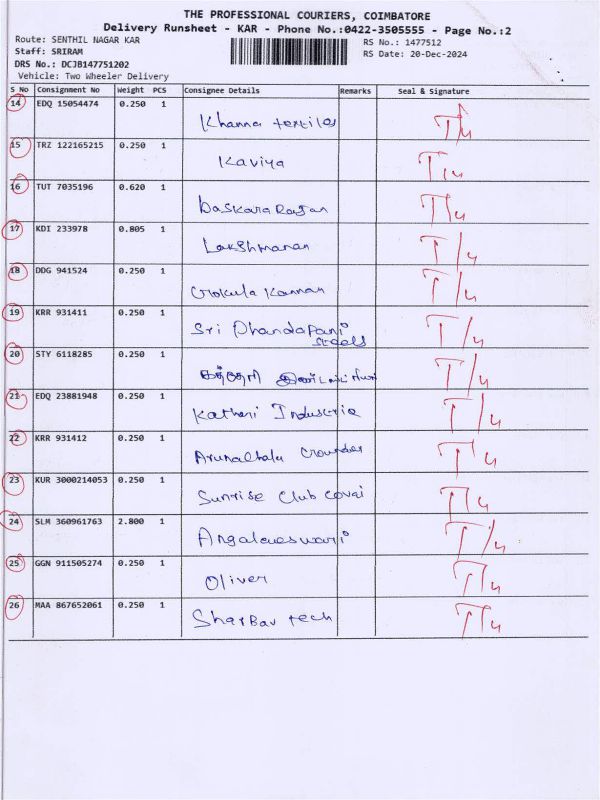 THE PROFESSIONAL COURIERS, COIMBATORE
Delivery Runsheet - KAR - Phone No.:0422-3505555 - Page No.:2
Route: SENTHIL NAGAR KAR
RS No.: 1477512
Staff: SRIRAM
RS Date: 20-Dec-2024
DRS No.: DCJB147751202
Vehicle: Two Wheeler Delivery
S No Consignment No Weight PCS Consignee Details Remarks Seal & Signature
14 EDQ 15054474 0.250 1 Khanna textiles
15 TRZ 122165215 0.250 1 Kaviya
16 TUT 7035196 0.620 1 baskararajan
17 KDI 233978 0.805 1 Lakshmanan
18 DDG 941524 0.250 1 Gokula Kannan
19 KRR 931411 0.250 1 Sri Dhandapani
steels
20 STY 6118285 0.250 1
21 EDQ 23881948 0.250 1 Katheri Industrie
22 KRR 931412 0.250 1 Arunachala Gounder
23 KUR 3000214053 0.250 1 Sunrise Club Covai
24 SLM 360961763 2.800 1 Angaleneswari
25 GGN 911505274 0.250 1 Oliver
26 MAA 867652061 0.250 1 Sharbav tech